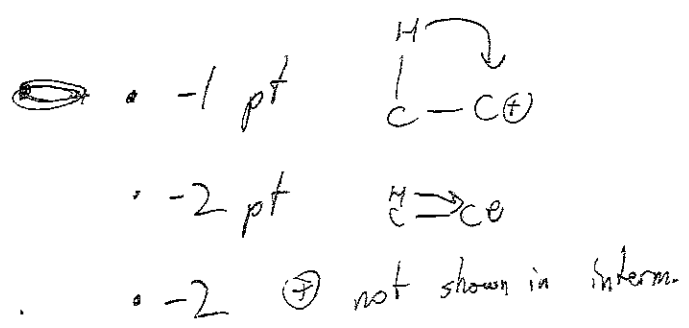 H
• -1 pt C - C⊕
• -2 pt H C C⊕
• -2 ⊕ not shown in interm.